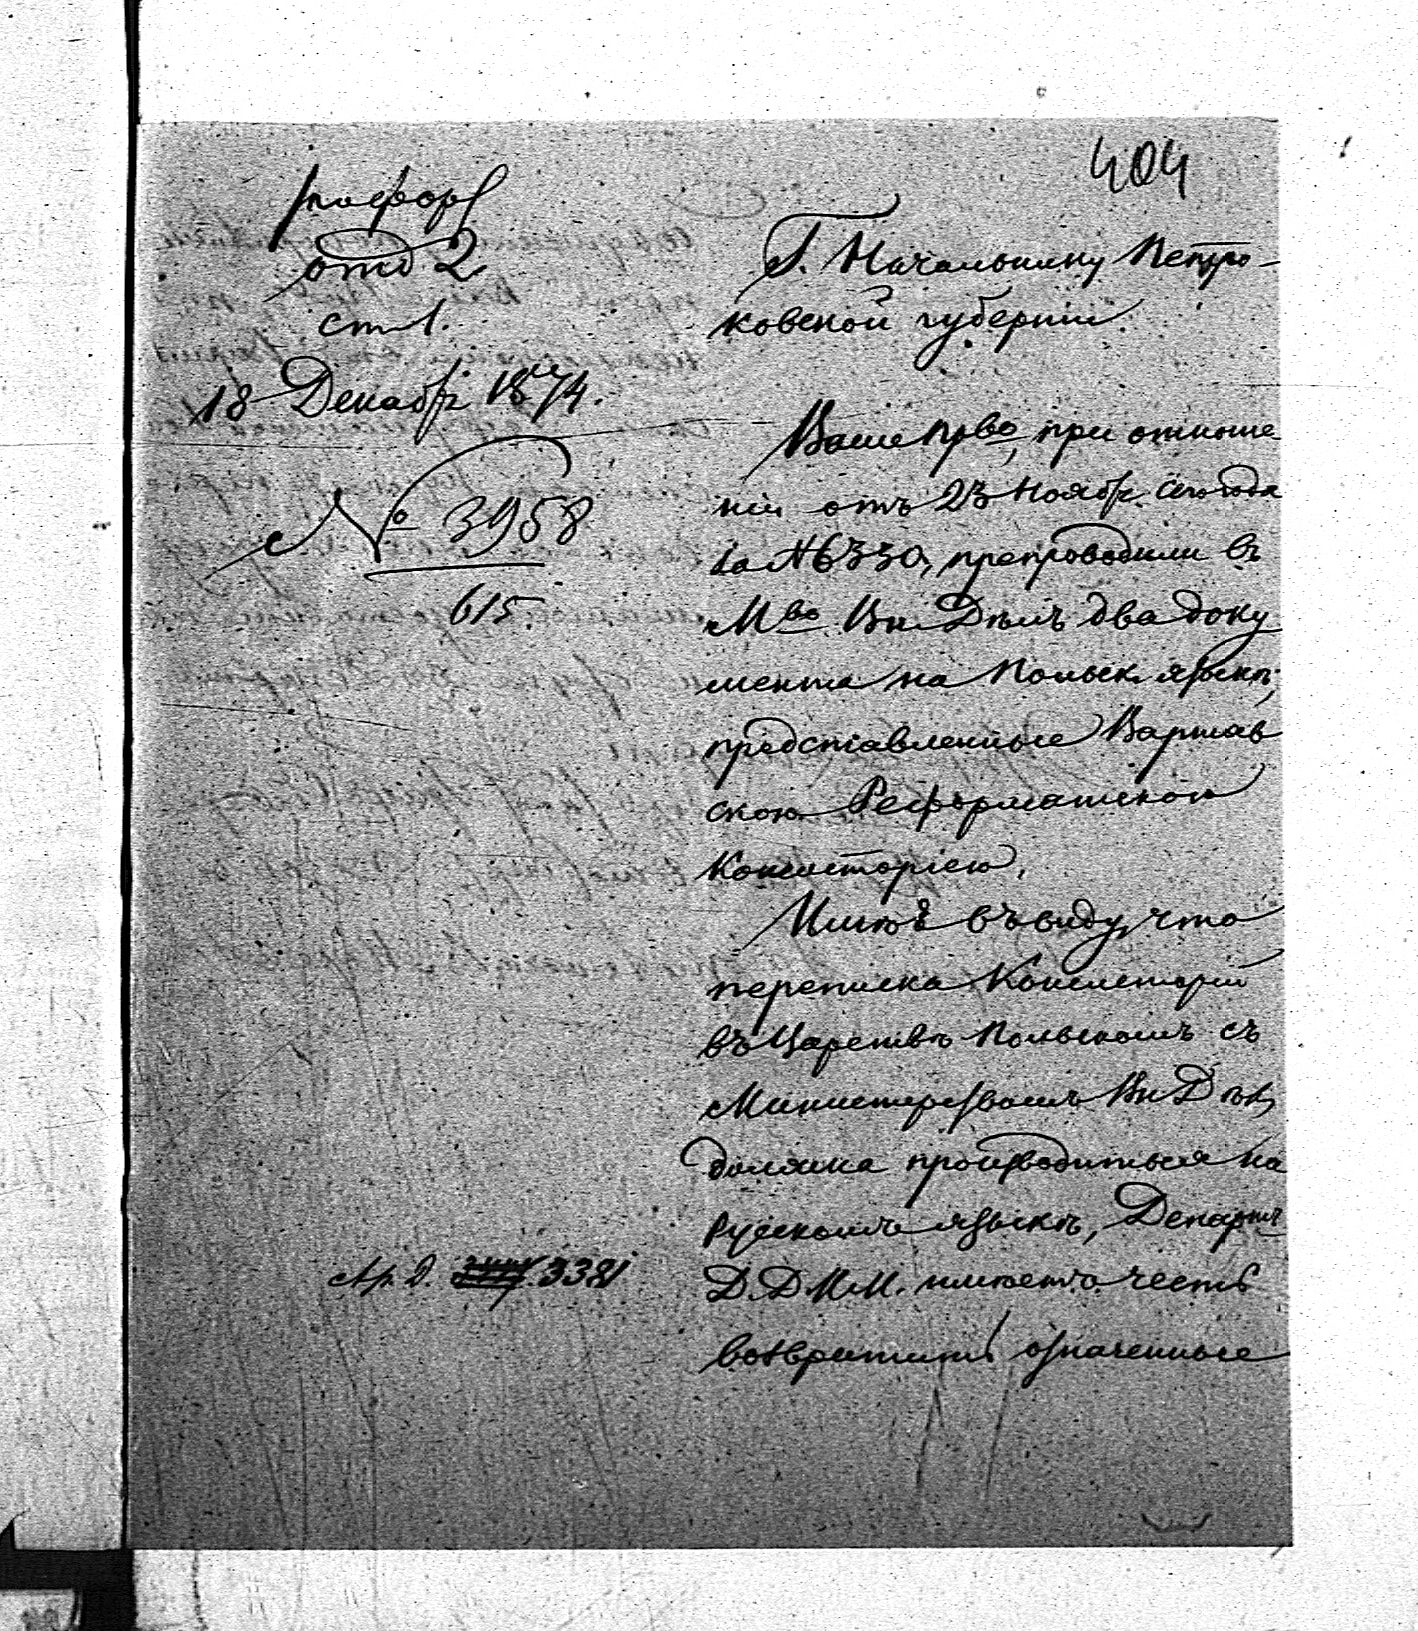 404
отд 2
ст 1.
18 Декабря 1874.
№ 3958
615.
Г. Начальнику Петро-
ковской губерніи.
Ваше Пр̃во, при отноше
ніи отъ 23 Ноябр. сего года
за № 6330, препроводили въ
Мво Вн Дѣлъ два доку
мента на Польск. языкѣ,
представленные Варшав
скою Реформатскою
Консисторіею.
Имѣя въ виду, что
переписка Консисторій
въ Царствѣ Польскомъ съ
Министерствомъ Вн Дѣл,
должна производиться на
Русскомъ языкѣ, Департ
Д. Д. И. И. имѣетъ честь
возвратить означенные
3381